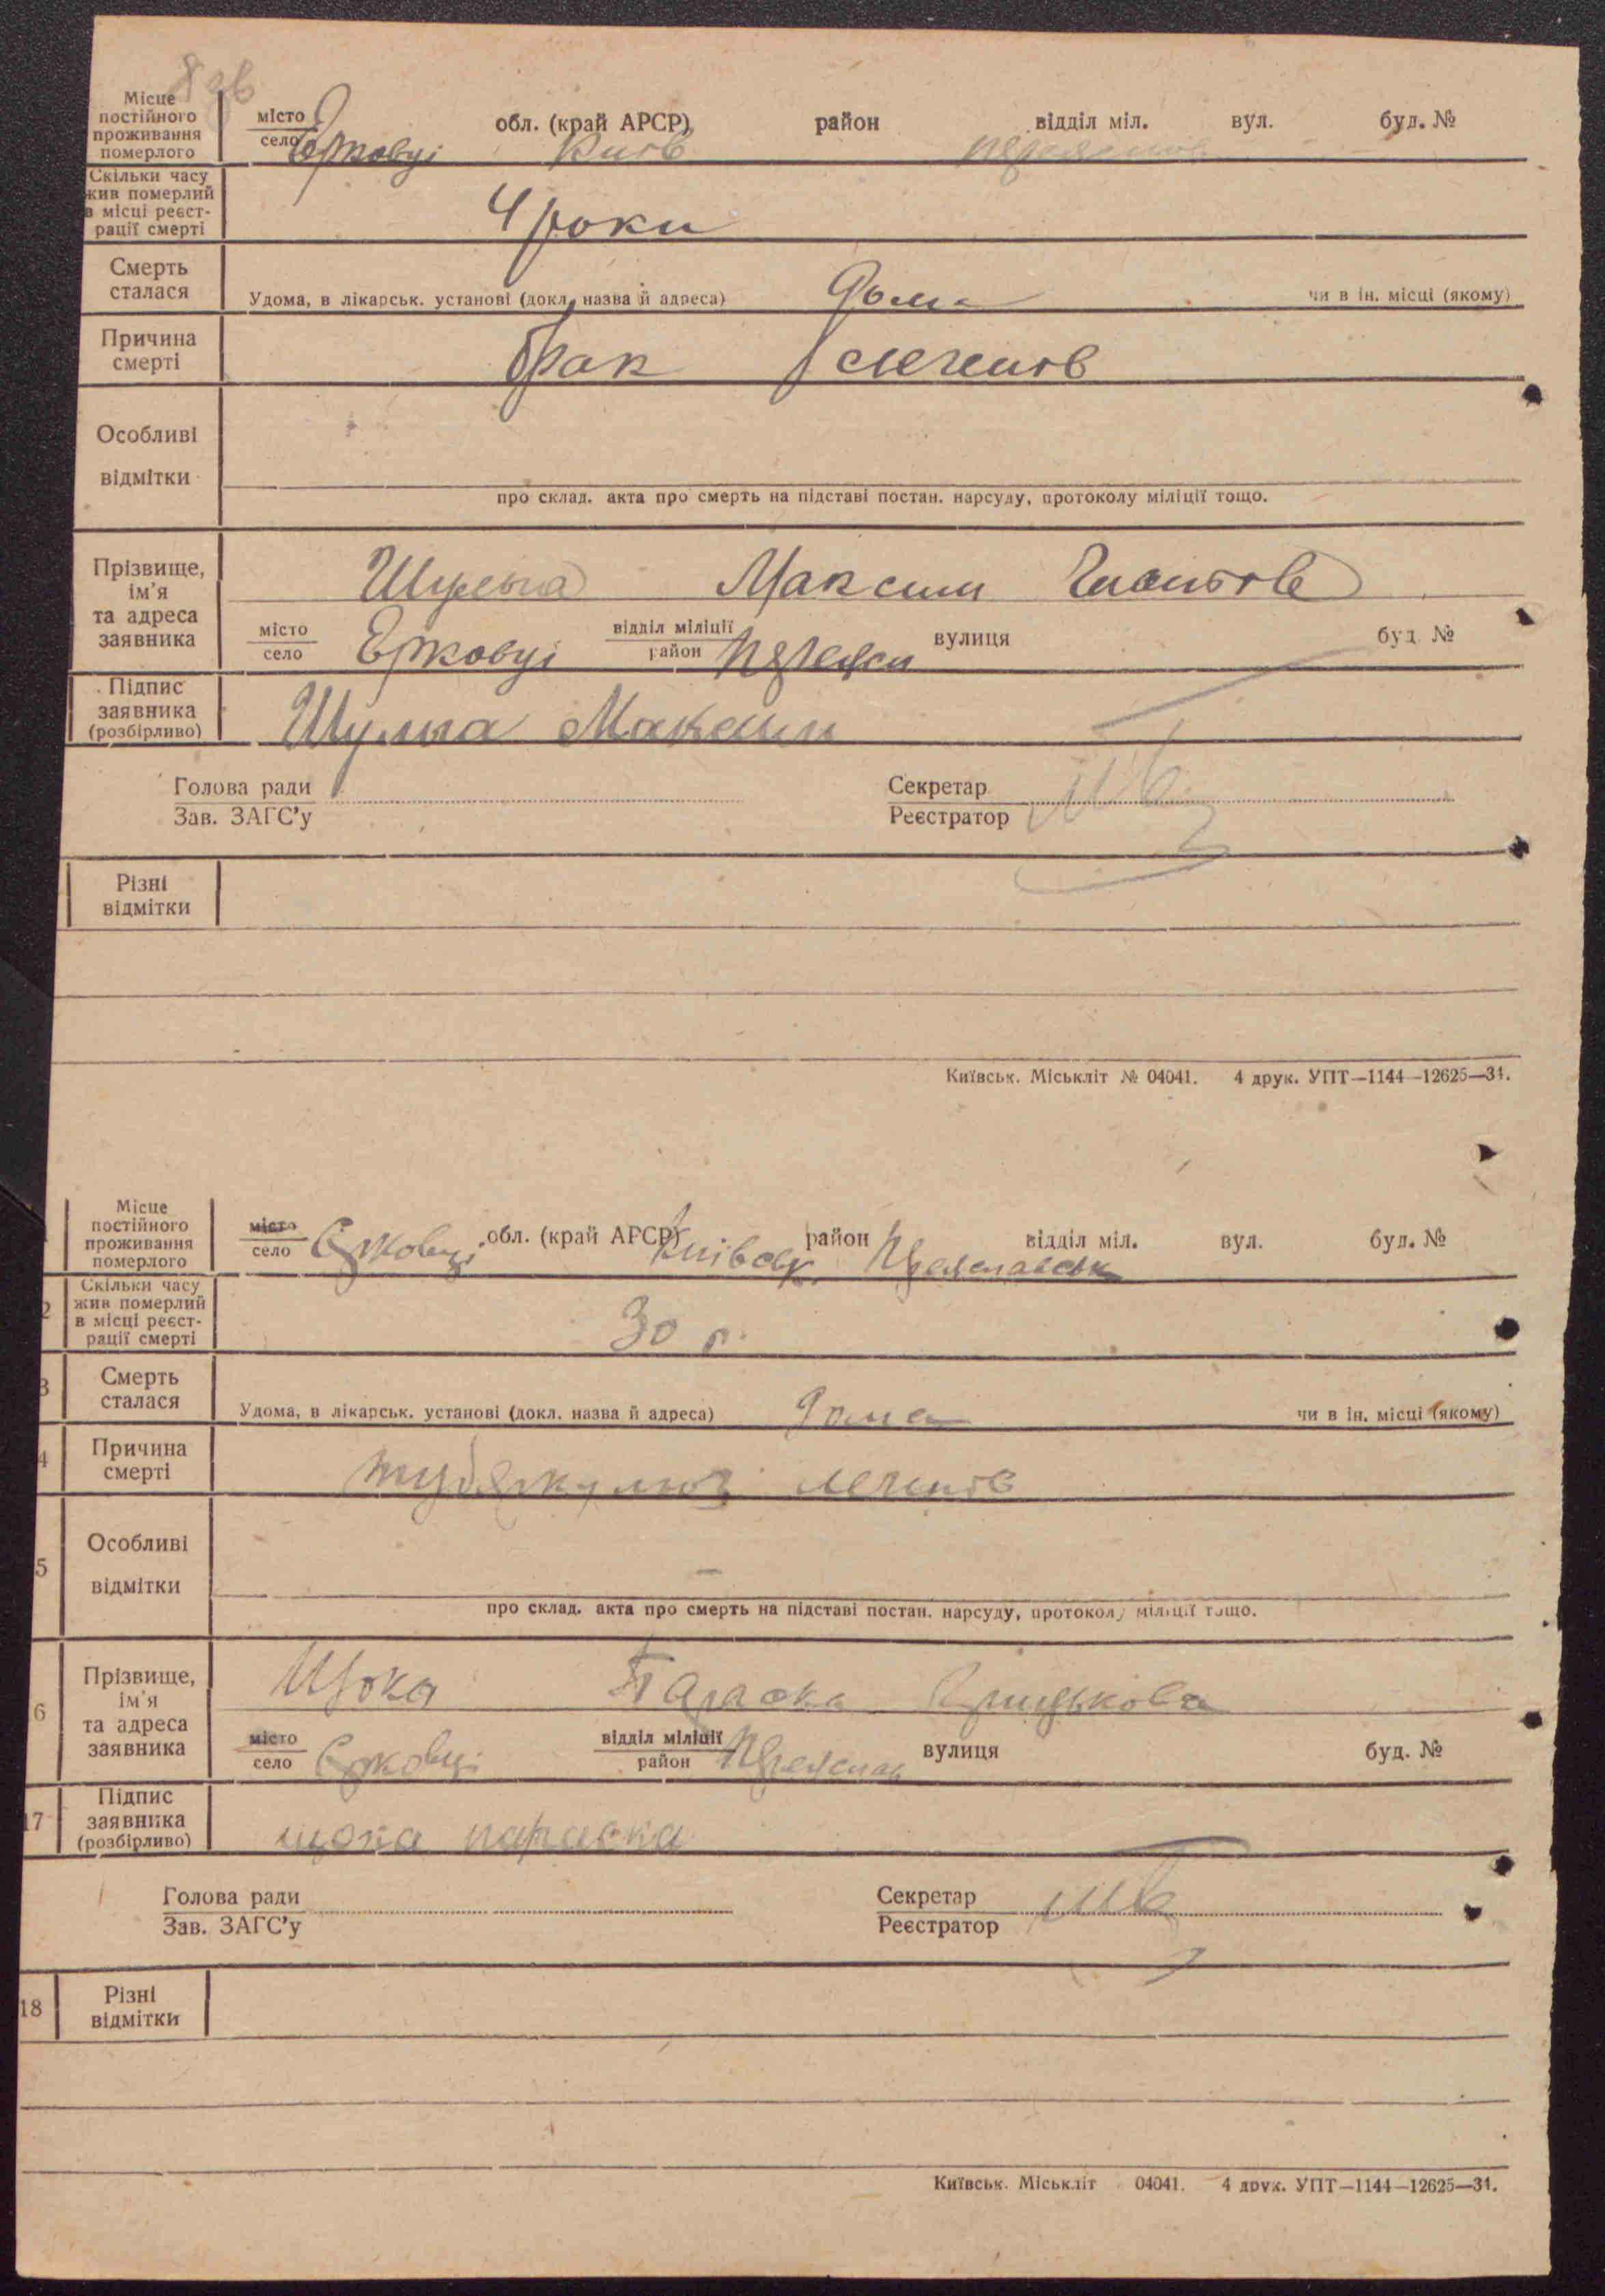 Місце
постійного
проживання
померлого
місто обл. (край АРСР) район відділ міл. вул. буд. №
село Єрковці Київ
Скільки часу
жив померлий
в місці реєст-
рації смерті
4 роки
Смерть
сталася
Удома, в лікарськ. установі (докл. назва й адреса) Дома чи в ін. місці (якому)
Причина
смерті
Особливі
відмітки
про склад. акта про смерть на підставі постан. нарсуду, протоколу міліції тощо.
Прізвище,
ім'я
та адреса
заявника
Шульга Максим
місто відділ міліції вулиця буд №
село Єрковці район
Підпис
заявника
(розбірливо)
Шульга Максим
Голова ради Секретар
Зав. ЗАГС'у Реєстратор
Різні
відмітки
Київськ. Міськліт № 04041. 4 друк. УПТ—1144—12625—31.
Місце
постійного
проживання
померлого
місто обл. (край АРСР) район відділ міл. вул. буд. №
село Єрковці Київськ. Переяславськ
2
Скільки часу
жив померлий
в місці реєст-
рації смерті
30 р.
3
Смерть
сталася
Удома, в лікарськ. установі (докл. назва й адреса) Дома чи в ін. місці (якому)
4
Причина
смерті
5
Особливі
відмітки
про склад. акта про смерть на підставі постан. нарсуду, протоколу міліції тощо.
6
Прізвище,
ім'я
та адреса
заявника
Цьока Параска Грицькова
місто відділ міліції вулиця буд. №
село Єрковці район Переяслав
17
Підпис
заявника
(розбірливо)
цока параска
Голова ради Секретар
Зав. ЗАГС'у Реєстратор
18
Різні
відмітки
Київськ. Міськліт 04041. 4 друк. УПТ—1144—12625—31.